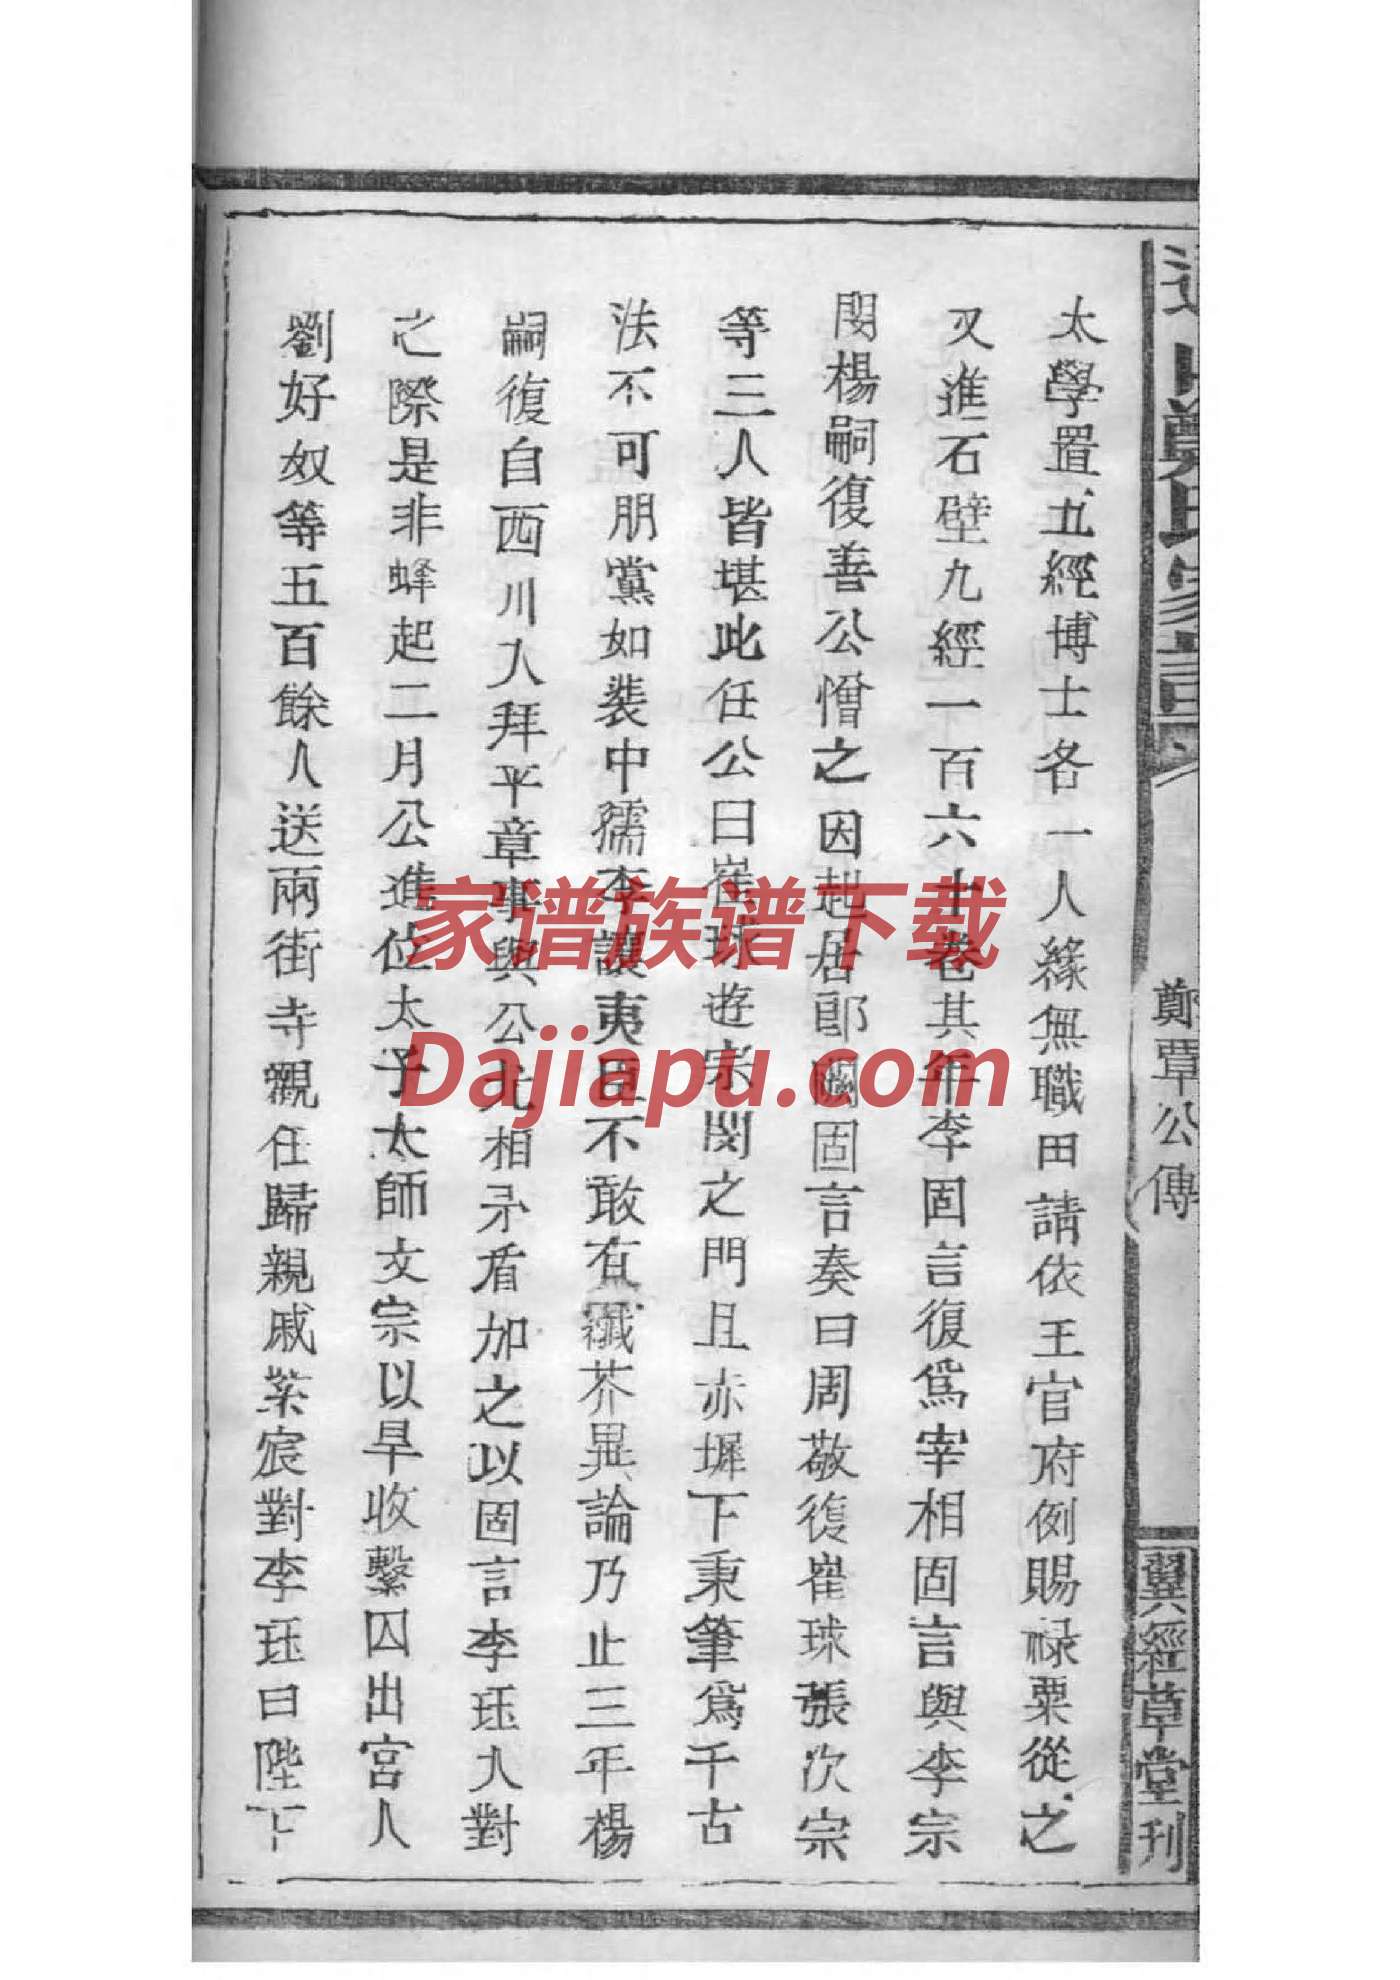 太學置五經博士各一人緣無職田請依王官府例賜祿粟從之
又進石壁九經一百六十卷其年李固言復爲宰相固言與李宗
閔楊嗣復善公憎之因起居郎闕固言奏曰周敬復崔球張次宗
等三人皆堪此任公曰崔球遊宗閔之門且赤墀下秉筆爲千古
法不可朋黨如裴中孺李讓夷臣不敢有纖芥異論乃止三年楊
嗣復自西川入拜平章事與公尤相矛盾加之以固言李珏入對
之際是非蜂起二月公進位太子太師文宗以旱收繫囚出宮人
劉好奴等五百餘人送兩街寺觀任歸親戚紫宸對李珏曰陛下
鄭氏家譜
鄭覃公傳
翼經草堂刊
家谱族谱下载
Dajiapu.com